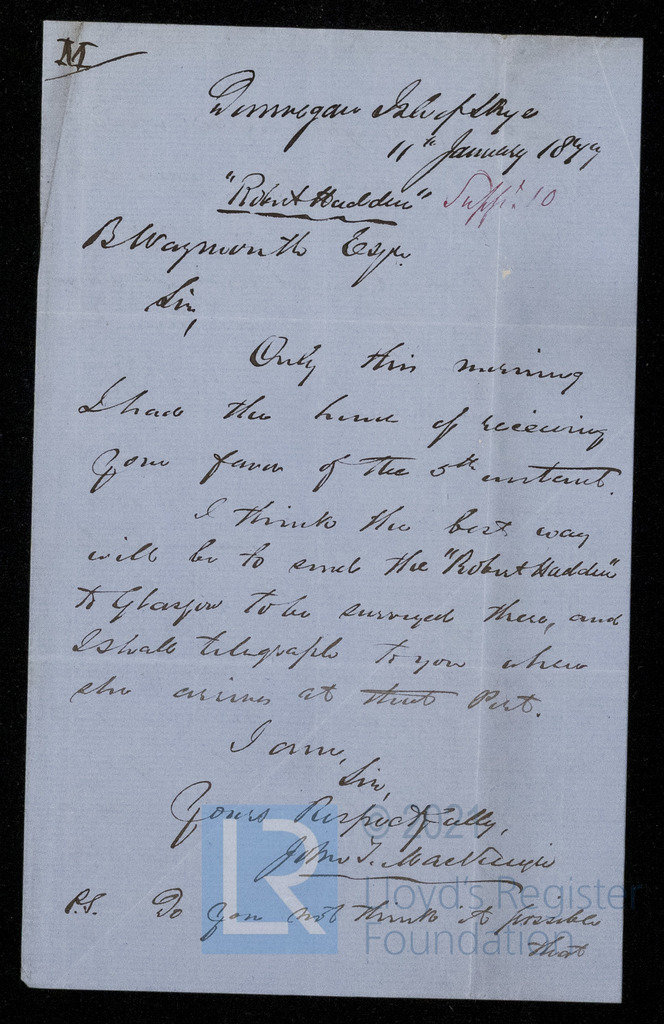 M
Dunvegan Isle of Skye
11th January 1877
"Robert Hadden" Sufft. 10
B Waymouth Esqr.
Sir,
Only this morning
I had the honor of receiving
your favor of the 5th instant.
I think the best way
will be to send the "Robert Hadden"
to Glasgow to be surveyed there, and
I shall telegraph to you when
she arrives at that Port.
I am,
Sir,
Yours Respectfully,
John T. MacKenzie
P.S. Do you not think it possible
that
LR
© 2021
Lloyd's Register
Foundation